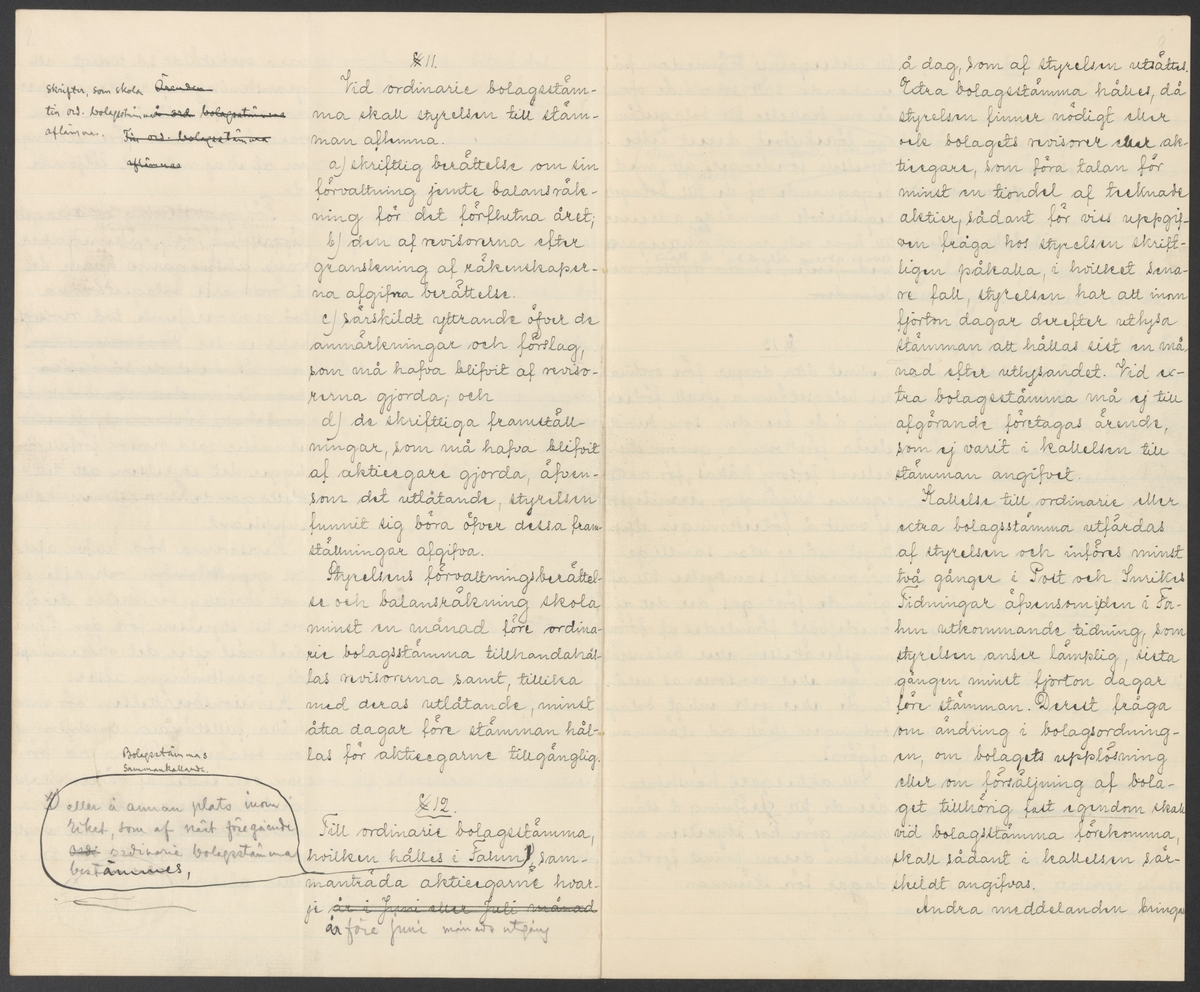 § 11.
Skrifter, som skola Ärenden
till ord. bolagsstämma å ord bolagsstämma
aflämnas. Till ord. bolagsstämma
aflämnas
Vid ordinarie bolagsstäm-
ma skall styrelsen till stäm-
man aflemna.
a) skriftlig berättelse om sin
förvaltning jemte balansräk-
ning för det förflutna året;
b) den af revisorerna efter
granskning af räkenskaper-
na afgifna berättelse.
c) särskildt yttrande öfver de
anmärkningar och förslag,
som må hafva blifvit af reviso-
rerna gjorda; och
d) de skriftliga framställ-
ningar, som må hafva blifvit
af aktieegare gjorda, äfven-
som det utlåtande, styrelsen
funnit sig böra öfver dessa fram-
ställningar afgifva.
Styrelsens förvaltningsberättel-
se och balansräkning skola
minst en månad före ordina-
rie bolagsstämma tillhandahål-
las revisorerna samt, tillika
med deras utlåtande, minst
åtta dagar före stämman hål-
las för aktieegarne tillgänglig.
Bolagsstämmas
Sammankallande.
x) eller å annan plats inom
Riket, som af näst föregående
ordi ordinarie bolagsstämma
bestämmes,
§ 12.
Till ordinarie bolagsstämma,
hvilken hålles i Falun x), sam-
manträda aktieegarne hvar-
je år i Juni eller Juli månad
år före Juni månads utgång
å dag, som af styrelsen utsättes.
Extra bolagsstämma hålles, då
styrelsen finner nödigt eller
ock bolagets revisorer eller ak-
tieegare, som föra talan för
minst en tiondel af tecknade
aktier, sådant för viss uppgif-
ven fråga hos styrelsen skrift-
ligen påkalla, i hvilket sena-
re fall, styrelsen har att inom
fjorton dagar derefter utlysa
stämman att hållas sist en må-
nad efter utlysandet. Vid ex-
tra bolagsstämma må ej till
afgörande företagas ärende,
som ej varit i kallelsen till
stämman angifvet.
Kallelse till ordinarie eller
extra bolagsstämma utfärdas
af styrelsen och införes minst
två gånger i Post och Inrikes
Tidningar äfvensom i den i Fa-
lun utkommande tidning, som
styrelsen anser lämplig, sista
gången minst fjorton dagar
före stämman. Derest fråga
om ändring i bolagsordning-
en, om bolagets upplösning
eller om försäljning af bola-
get tillhörig fast egendom skall
vid bolagsstämma förekomma,
skall sådant i kallelsen sär-
skildt angifvas.
Andra meddelanden bringas